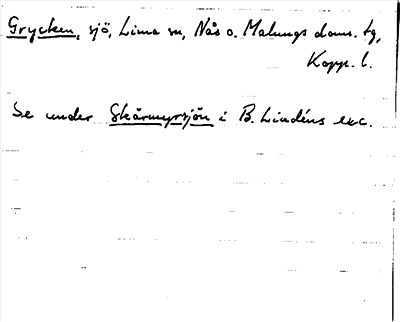 Grycken, sjö, Lima sn, Nås o. Malungs doms. tg,
Kopp. l.
Se under Skärmyrsjön i B. Lindéns exc.